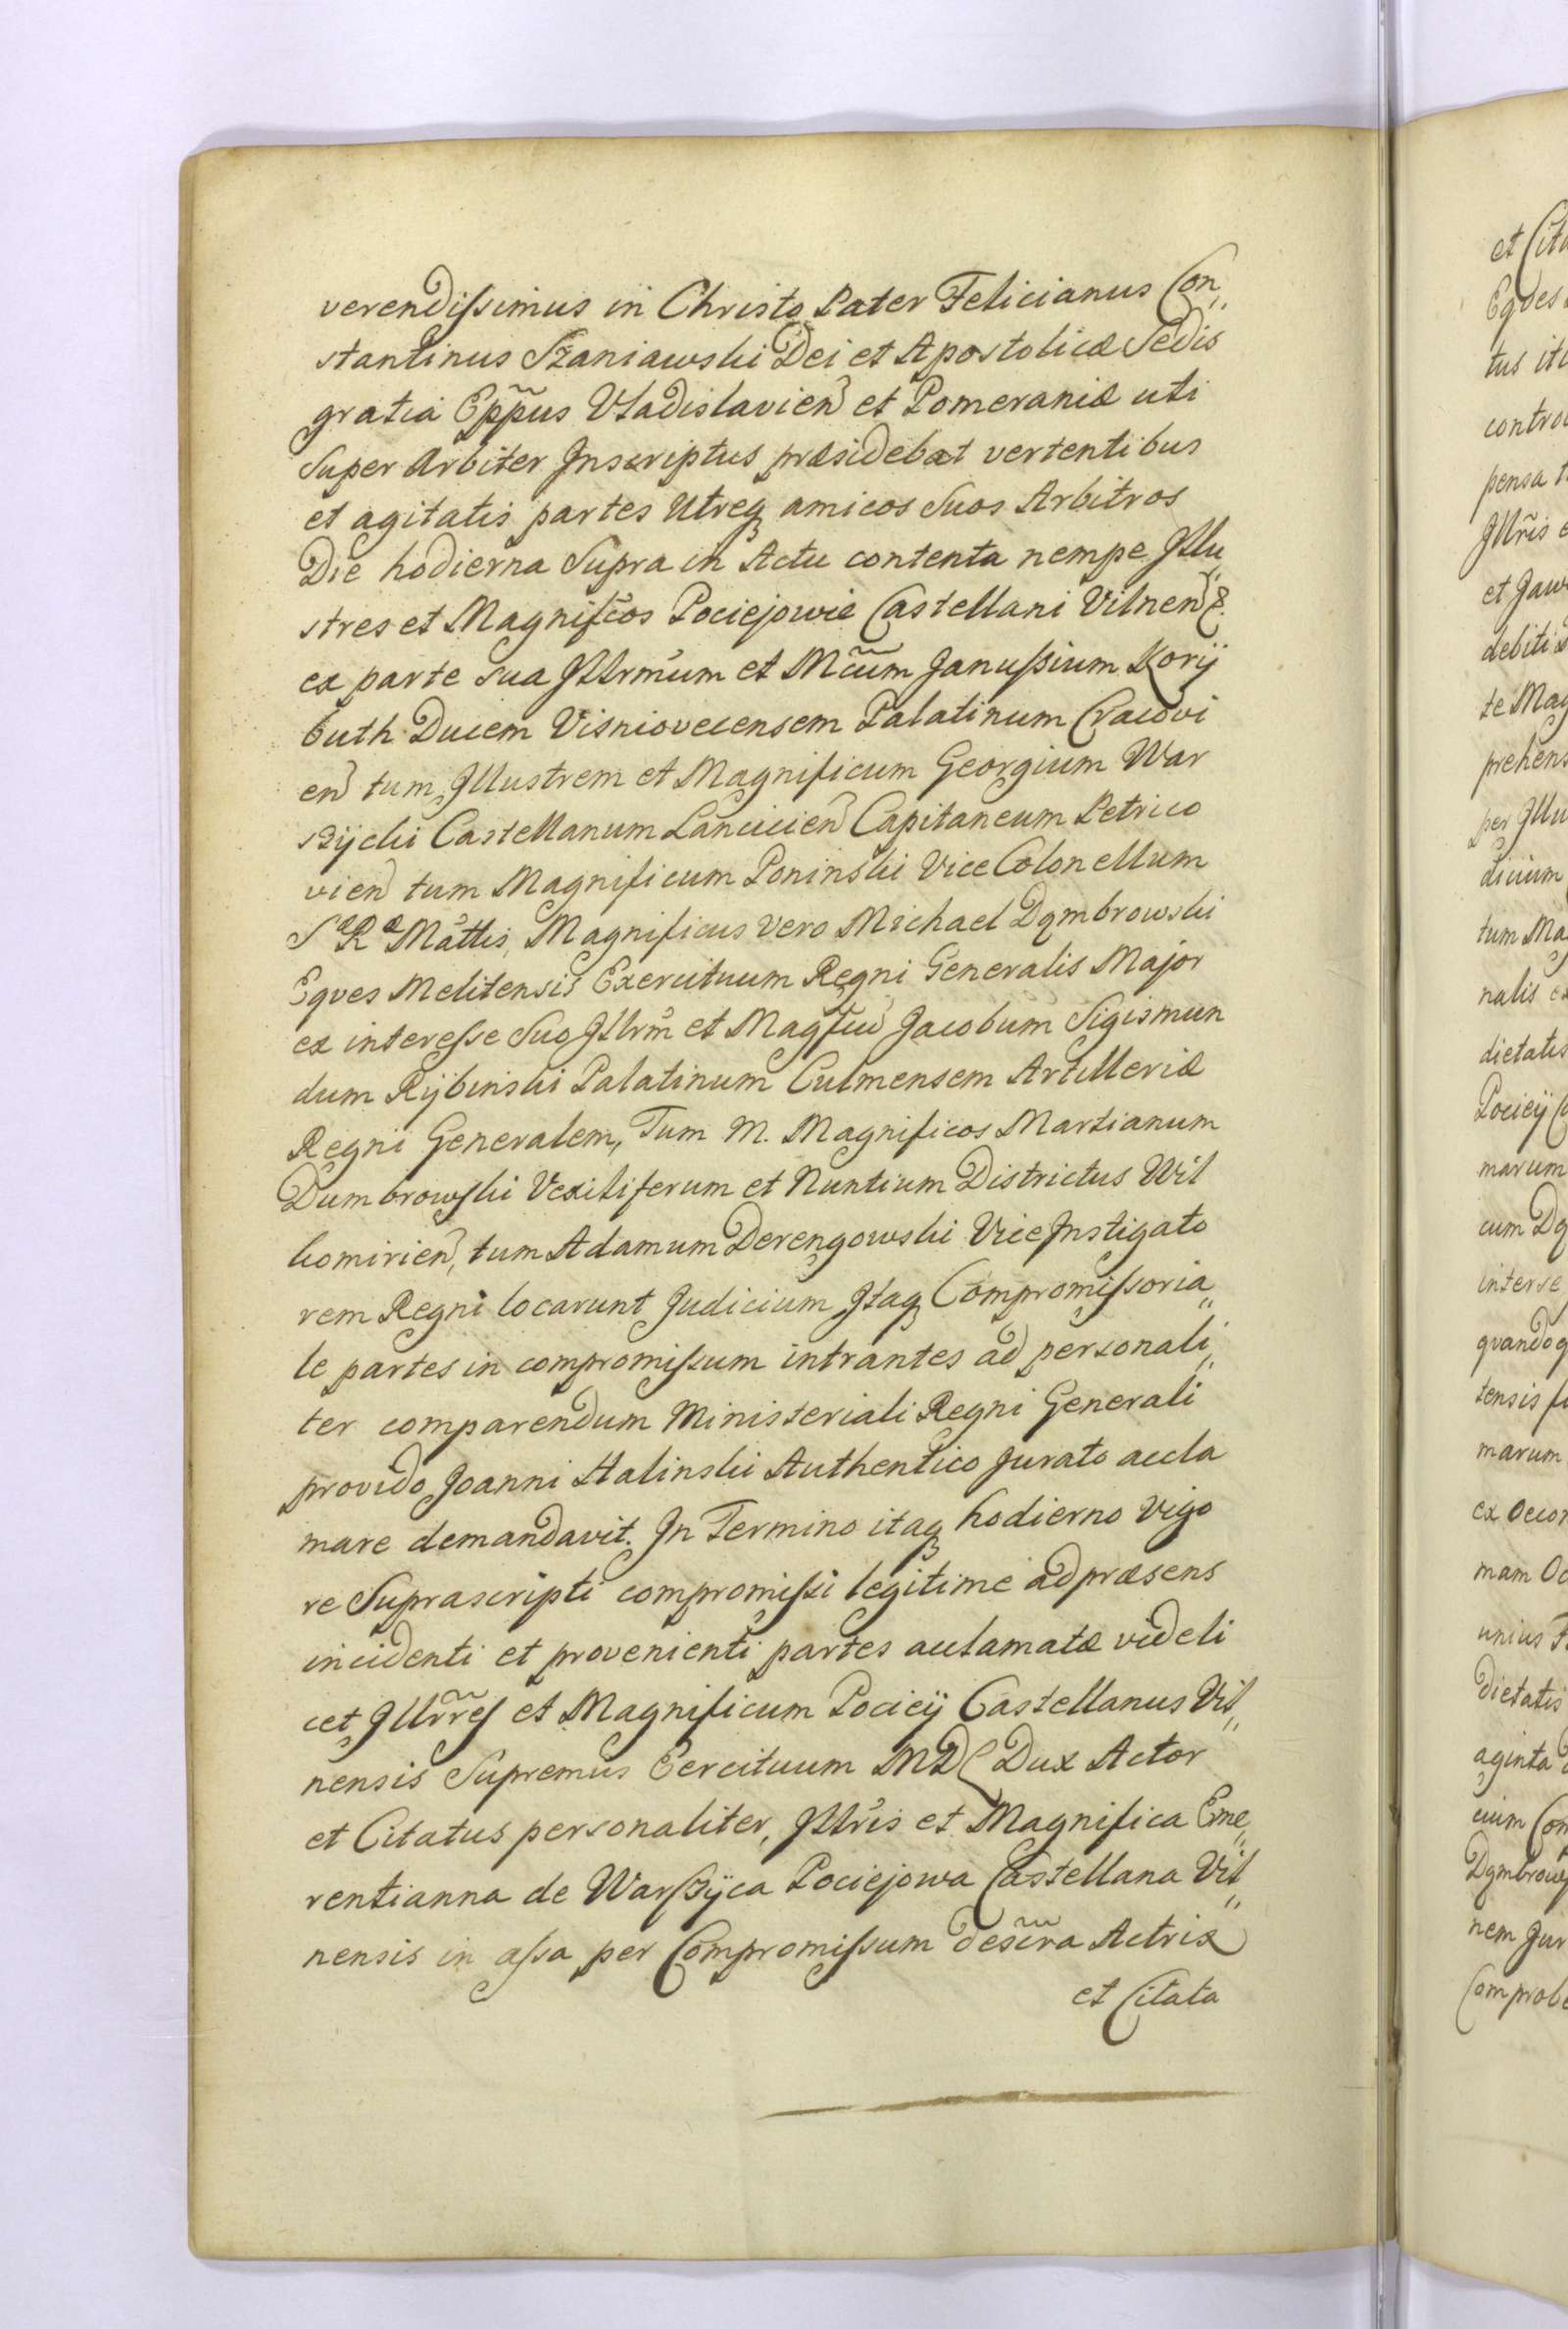 verendissimus in Christo Pater Felicianus Con„
stantinus Szaniawski Dei et Apostolicæ Sedis
gratia Epp̃us Vladislavien̄ et Pomeraniæ uti
Super Arbiter Inscriptus præsidebat vertentibus
et agitatis partes Utreq amicos Suos Arbitros
Die hodierna Supra in Actu contenta nempe Illu„
stres et Magnifc̄os Pociejowie Castellani Vilnen̄
ex parte sua Illrm̄um et Mc̃um Janussium Korÿ
buth Ducem Visniovecensem Palatinum Cracovi
en̄ tum Illustrem et Magnificum Georgium War
szÿcki Castellanum Lancicien̄ Capitaneum Petrico
vien̄ tum Magnificum Poninski Vice Colonellum
Sæ Ræ Māttis, Magnificus vero Michael Dąmbrowski
Eqves Melitensis Exercituum Regni Generalis Major
ex interesse Suo Illrm̄ et Magfcū Jacobum Sigismun
dum Rÿbinski Palatinum Culmensem Artilleriæ
Regni Generalem, Tum M. Magnificos Martianum
Dumbrowski Vexiliferum et Nuntium Districtus Wil
komirien̄, tum Adamum Derengowski Vice Instigato
rem Regni locarunt Judicium Itaq Compromissoria„
le partes in compromissum intrantes ad personali„
ter comparendum Ministeriali Regni Generali
provido Joanni Halinski Authentico Jurato accla
mare demandavit. In Termino itaq hodierno vigo
re Suprascripti compromissi legitime ad præsens
incidenti et provenienti partes acclamatæ videli
cet Illr̃res et Magnificum Pocieÿ Castellanus Vil„
nensis Supremus Eercituum MDL Dux Actor
et Citatus personaliter, Illrīs et Magnifica Eme„
rentianna de Warszÿca Pociejowa Castellana Vil„
nensis in assa per Compromissum descr̃a Actrix
et Citata
et Cita
Eqves
tus it
contro
pensa t
Illr̃is
et Jaw
debiti
te Mag
prehens
per Illu
dicium
tum Ma
nalis
dictatis
Pocieÿ
marum
cum Dą
interse
qvandoq
tensis
marum
ex Oecon
mam Oc
unius
dictatis
aginta
cium Com
Dąmbrows
nem Jur
Comprob